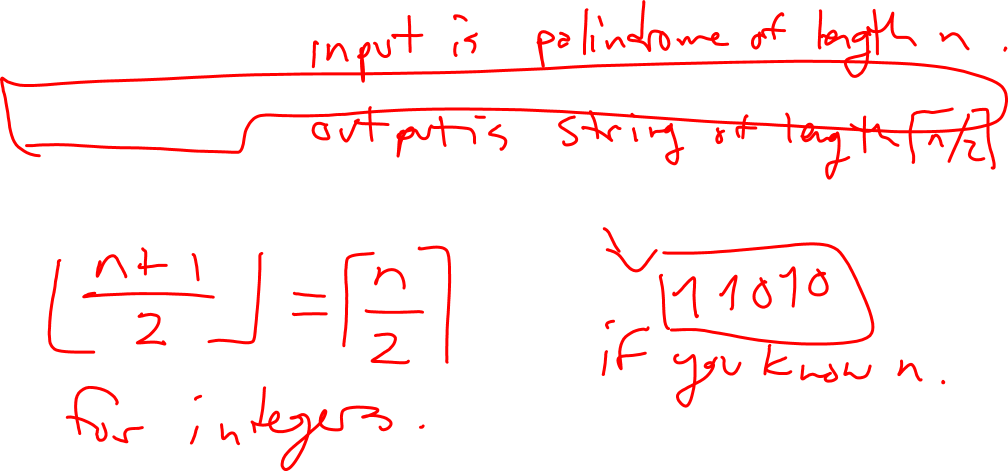 input is palindrome of length n.
output is string of length ⌈n/2⌉
⌊(n+1)/2⌋ = ⌈n/2⌉
for integers.
11010
if you know n.